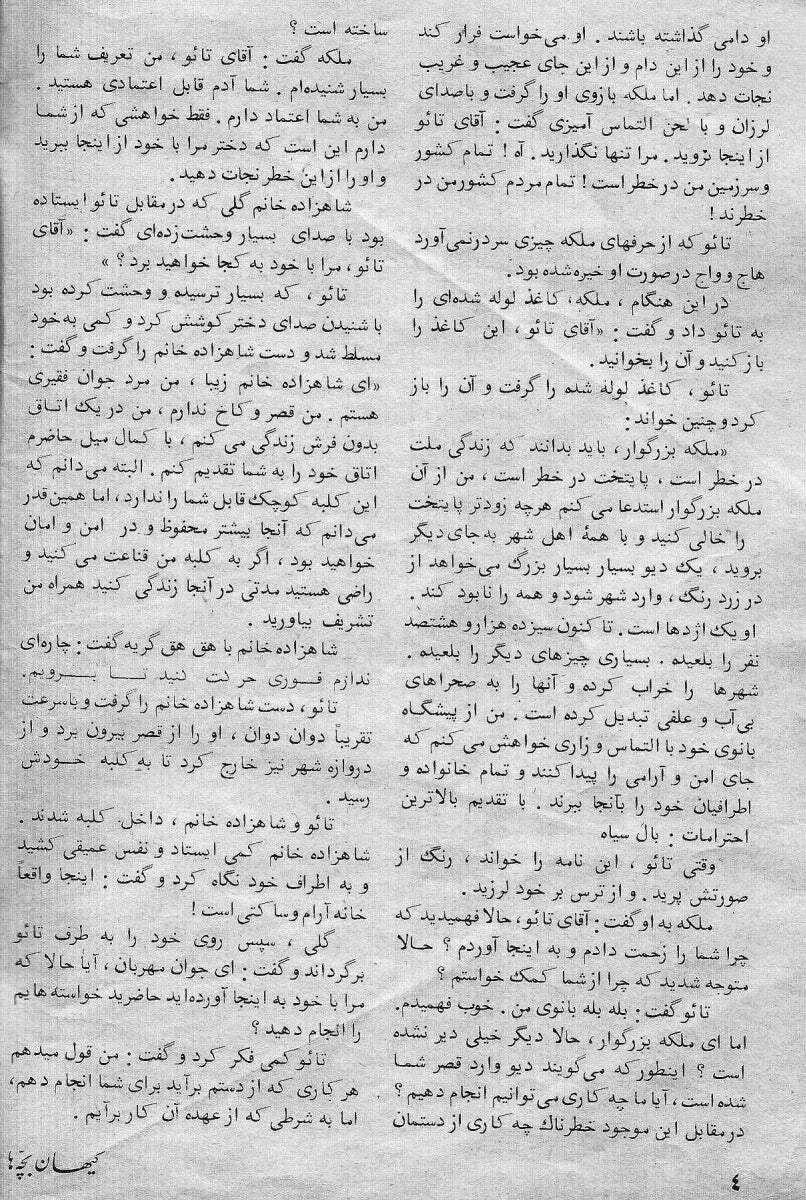 او دامی گذاشته باشند . او می‌خواست فرار کند
و خود را از این دام و از این جای عجیب و غریب
نجات دهد . اما ملکه بازوی او را گرفت و باصدای
لرزان و با لحن التماس آمیزی گفت : آقای تائو
از اینجا نروید . مرا تنها نگذارید . آه ! تمام کشور
وسرزمین من در خطر است ! تمام مردم کشورمن در
خطرند !
تائو که از حرفهای ملکه چیزی سردرنمی‌آورد
هاج و واج درصورت او خیره‌شده بود .
در این هنگام ، ملکه، کاغذ لوله شده‌ای را
به تائو داد و گفت : «آقای تائو ، این کاغذ را
بازکنید و آن را بخوانید .
تائو ، کاغذ لوله شده را گرفت و آن را باز
کرد و چنین خواند :
«ملکه بزرگوار، باید بدانند که زندگی ملت
در خطر است ، پایتخت در خطر است ، من از آن
ملکه بزرگوار استدعا می کنم هرچه زودتر پایتخت
را خالی کنید و با همهٔ اهل شهر به‌جای دیگر
بروید ، یک دیو بسیار بسیار بزرگ می‌خواهد از
در زرد رنگ، وارد شهر شود و همه را نابود کند .
او یک اژدها است . تا کنون سیزده هزار و هشتصد
نفر را بلعیده . بسیاری چیزهای دیگر را بلعیده .
شهرها را خراب کرده و آنها را به صحراهای
بی‌آب و علفی تبدیل کرده است . من از پیشگاه
بانوی خود با التماس و زاری خواهش می کنم که
جای امن و آرامی را پیدا کنند و تمام خانواده و
اطرافیان خود را بآنجا ببرند . با تقدیم بالاترین
احترامات : بال سیاه
وقتی تائو ، این نامه را خواند ، رنگ از
صورتش پرید . و از ترس بر خود لرزید .
ملکه به او گفت : آقای تائو، حالا فهمیدید که
چرا شما را زحمت دادم و به اینجا آوردم ؟ حالا
متوجه شدید که چرا از شما کمک خواستم ؟
تائو گفت : بله بله بانوی من . خوب فهمیدم.
اما ای ملکه بزرگوار، حالا دیگر خیلی دیر نشده
است ؟ اینطور که می‌گویند دیو وارد قصر شما
شده است، آیا ما چه کاری می‌توانیم انجام دهیم ؟
در مقابل این موجود خطرناک چه کاری از دستمان
ساخته است ؟
ملکه گفت : آقای تائو ، من تعریف شما را
بسیار شنیده‌ام . شما آدم قابل اعتمادی هستید .
من به شما اعتماد دارم . فقط خواهشی که از شما
دارم این است که دختر مرا با خود از اینجا ببرید
و او را از این خطر نجات دهید .
شاهزاده خانم گلی که در مقابل تائو ایستاده
بود با صدای بسیار وحشت‌زده‌ای گفت : «آقای
تائو ، مرا با خود به کجا خواهید برد ؟ »
تائو ، که بسیار ترسیده و وحشت کرده بود
با شنیدن صدای دختر کوشش کرد و کمی به‌خود
مسلط شد و دست شاهزاده خانم را گرفت و گفت :
«ای شاهزاده خانم زیبا ، من مرد جوان فقیری
هستم . من قصر و کاخ ندارم ، من در یک اتاق
بدون فرش زندگی می کنم ، با کمال میل حاضرم
اتاق خود را به شما تقدیم کنم . البته می‌دانم که
این کلبه کوچک قابل شما را ندارد ، اما همین‌قدر
می‌دانم که آنجا بیشتر محفوظ و در امن و امان
خواهید بود ، اگر به کلبه من قناعت می کنید و
راضی هستید مدتی در آنجا زندگی کنید همراه من
تشریف بیاورید .
شاهزاده خانم با هق هق گریه گفت : چاره‌ای
ندارم فوری حرکت کنید تا برویم .
تائو، دست شاهزاده خانم را گرفت و باسرعت
تقریباً دوان دوان ، او را از قصر بیرون برد و از
دروازه شهر نیز خارج کرد تا به کلبه خودش
رسید .
تائو و شاهزاده خانم ، داخل کلبه شدند .
شاهزاده خانم کمی ایستاد و نفس عمیقی کشید
و به اطراف خود نگاه کرد و گفت : اینجا واقعاً
خانه آرام و ساکتی است !
گلی ، سپس روی خود را به طرف تائو
برگرداند و گفت : ای جوان مهربان ، آیا حالا که
مرا با خود به اینجا آورده‌اید حاضرید خواسته‌هایم
را انجام دهید ؟
تائو کمی فکر کرد و گفت : من قول میدهم
هر کاری که از دستم برآید برای شما انجام دهم،
اما به شرطی که از عهده آن کار برآیم .
کیهان بچه‌ها
٤